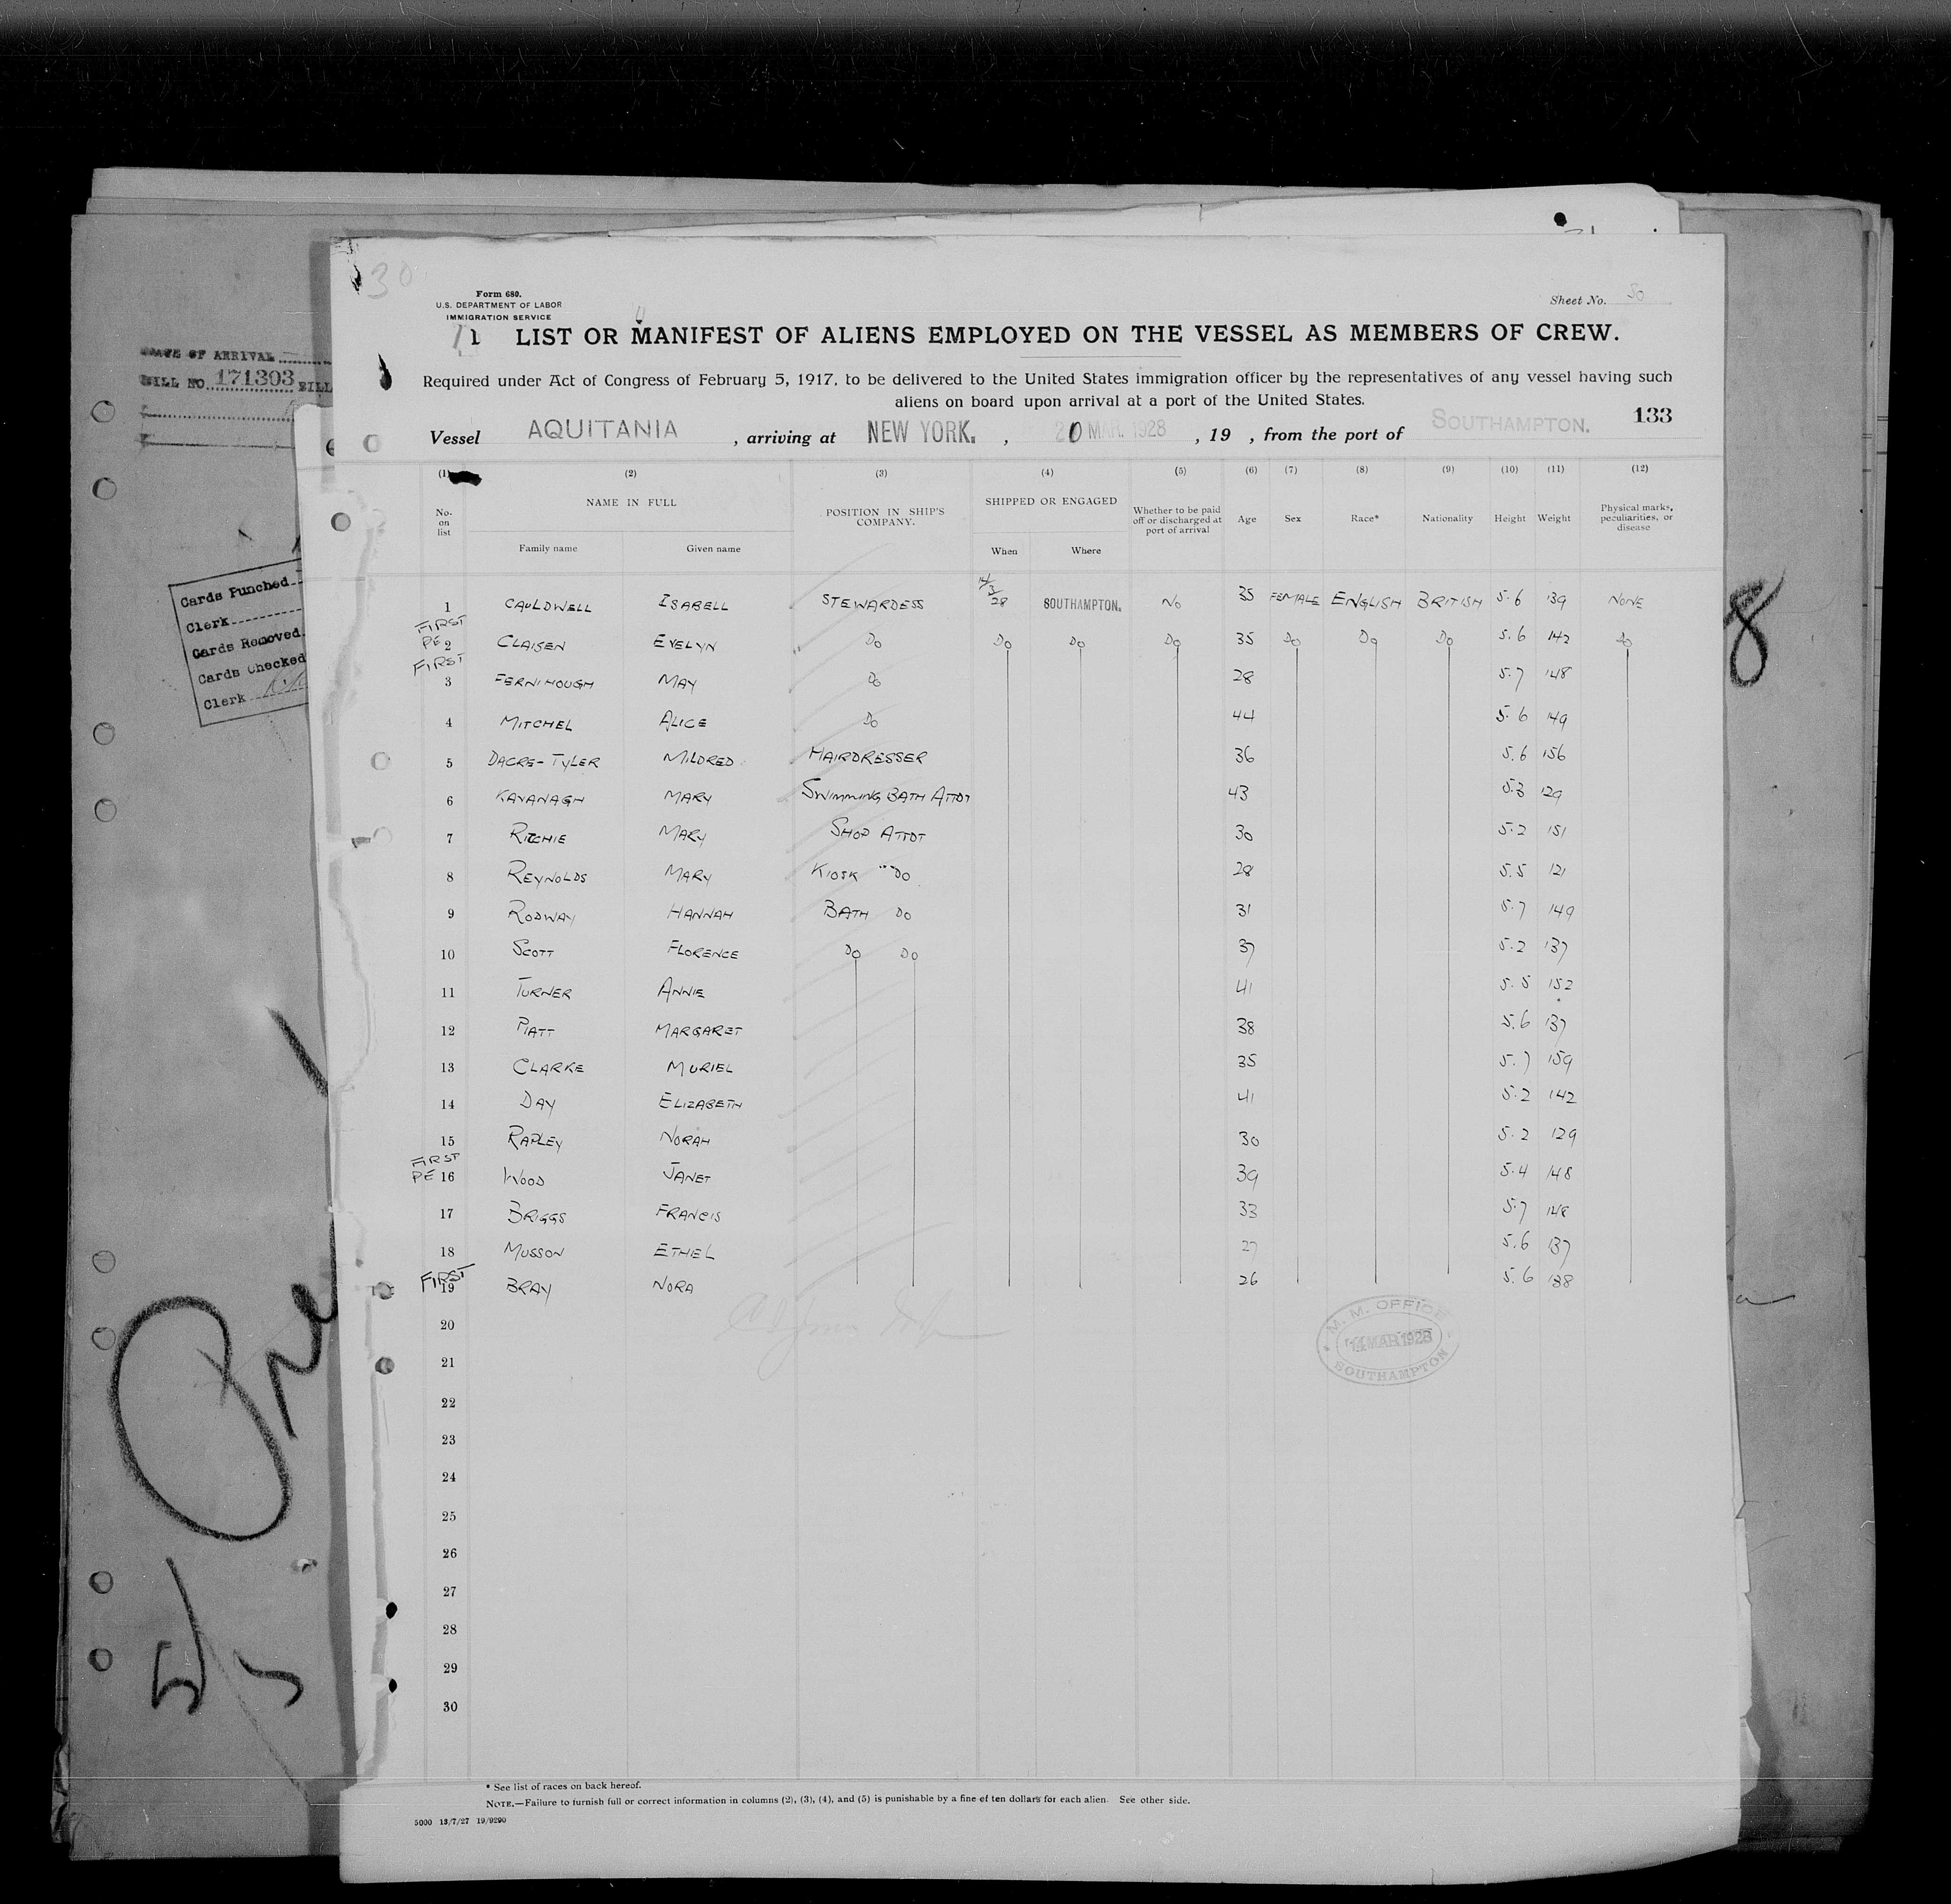 30
Form 680.
U.S. DEPARTMENT OF LABOR
IMMIGRATION SERVICE
Sheet No. 50
LIST OR MANIFEST OF ALIENS EMPLOYED ON THE VESSEL AS MEMBERS OF CREW.
Required under Act of Congress of February 5, 1917, to be delivered to the United States immigration officer by the representatives of any vessel having such
aliens on board upon arrival at a port of the United States.
133
Vessel AQUITANIA , arriving at NEW YORK. , 20 MAR. 1928 , 19 , from the port of SOUTHAMPTON.
(1) (2) (3) (4) (5) (6) (7) (8) (9) (10) (11) (12)
No. on list NAME IN FULL POSITION IN SHIP'S COMPANY. SHIPPED OR ENGAGED Whether to be paid off or discharged at port of arrival Age Sex Race* Nationality Height Weight Physical marks, peculiarities, or disease
Family name Given name When Where
1 CAULDWELL ISABELL STEWARDESS 14/3/28 SOUTHAMPTON. NO 35 FEMALE ENGLISH BRITISH 5.6 139 NONE
FIRST
PE 2 CLAISEN EVELYN DO DO DO DO 35 DO DO DO 5.6 142 DO
FIRST
3 FERNIHOUGH MAY DO 28 5.7 148
4 MITCHEL ALICE DO 44 5.6 149
5 DACRE-TYLER MILDRED HAIRDRESSER 36 5.6 156
6 KAVANAGH MARY SWIMMING BATH ATTDT 43 5.3 129
7 RITCHIE MARY SHOP ATTDT 30 5.2 151
8 REYNOLDS MARY KIOSK DO 28 5.5 121
9 RODWAY HANNAH BATH DO 31 5.7 149
10 SCOTT FLORENCE DO DO 37 5.2 137
11 TURNER ANNIE 41 5.5 152
12 PIATT MARGARET 38 5.6 137
13 CLARKE MURIEL 35 5.7 159
14 DAY ELIZABETH 41 5.2 142
15 RAPLEY NORAH 30 5.2 129
FIRST
PE 16 WOOD JANET 39 5.4 148
17 BRIGGS FRANCIS 33 5.7 148
18 MUSSON ETHEL 27 5.6 137
FIRST
19 BRAY NORA 26 5.6 138
20
21
22
23
24
25
26
27
28
29
30
M. M. OFFICE
14 MAR 1928
SOUTHAMPTON
* See list of races on back hereof.
NOTE.—Failure to furnish full or correct information in columns (2), (3), (4), and (5) is punishable by a fine of ten dollars for each alien. See other side.
5000 13/7/27 19/9290
DATE OF ARRIVAL
BILL NO. 171303 BILL
Cards Punched
Clerk
Cards Removed
Cards Checked
Clerk
8